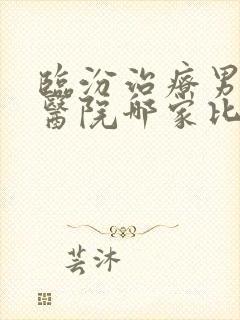 臨汾治療男
醫院哪家比
芸沐